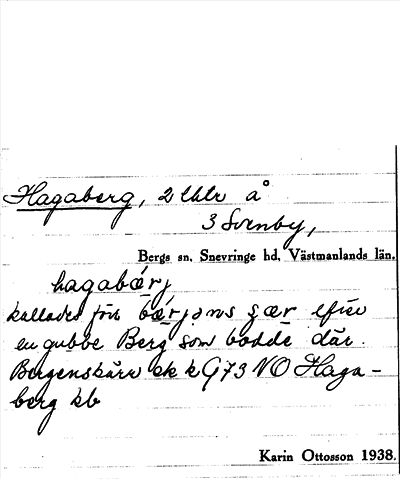 Hagaberg, 2 lhlr å
3 Svenby,
Bergs sn. Snevringe hd, Västmanlands län.
hagabǽrj
kallades förr bǽrjəns ʒær efter
en gubbe Berg som bodde där.
Bergenskärr ek k G73 NO Haga-
berg kb
Karin Ottosson 1938.